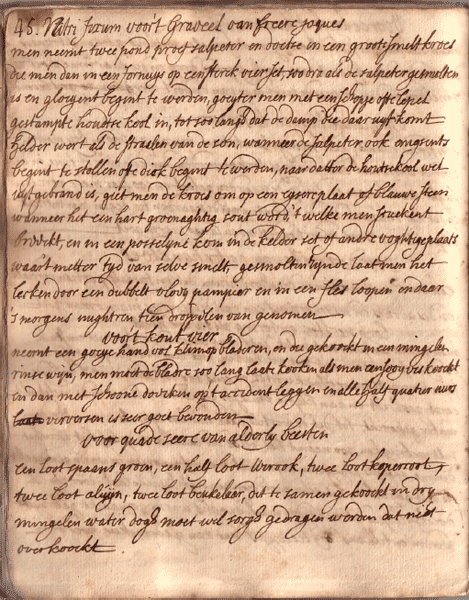 48. Nitri fixum voort Graveel van freere jaques
men neemt twee pond proef salpeter en doetse in een groote smelt kroes
die men dan in een fornuijs op een sterck vier set, soo dra als de salpeter gesmolten
is en gloeijent begint te werden, goeyter men met een schopje ofte lepel
gestampte houtse kool in, tot soo lange dat de damp die daar uijt komt
helder wert als de straelen van de son, wanneer de salpeter ook omgrents
begint te stollen ofte dick begint te werden, naer dat for de houtsekool wel
uijtgebrand is, giet men de kroes om op een eysere plaat of blauwe steen
wanneer het een hart groenaghtig sout word, 't welke men stuckent
broockt, en in een posselyne kom in de kelder set of andre voghtige plaats
waar't metter tyd van selve smelt, gesmolten synde laat men het
lecken door een dubbelt vloey pampier en in een fles loopen en daar
's morgens nughtren tien droppelen van genomen
voort kout vier
neemt een goeye hand vol klimop bladeren, en die gekoockt in een mingelen
rinse wyn, men moet de bladre soo lang laate kooken als men een sooy vis koockt
en dan met schoone doecken op t accident leggen en alle half quatier uurs
laat verversen is seer goet bevonden
voor quade seere van alderly beesten
Een loot spaans groen, een half loot wirook, twee loot koperroot,
twee loot aluijn, twee loot beukelaer, dit te samen gekoockt in dry
mingelen water dogh moet wel sorgh gedragen worden dat niet
overkoockt